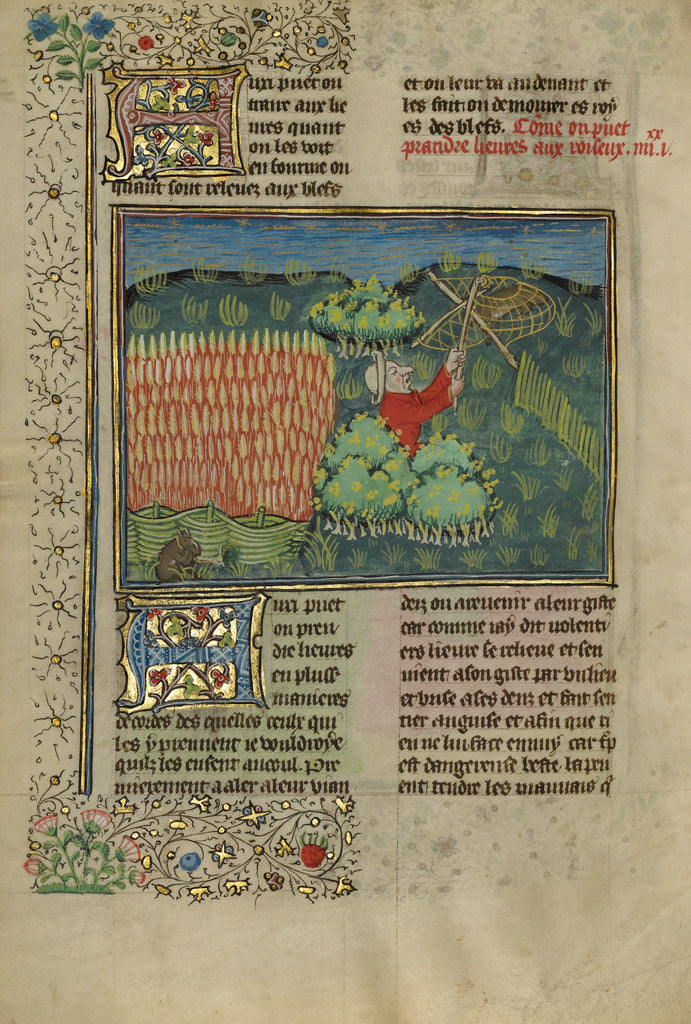 Auxi puet on
traire aux lie
ures quant
on les voit
en fourme ou
quant sont releuez aux blefs
et on leur va au deuant et
les fait on demourer es roy
es des blefs. Come on puet
prandre lieures aux roiseux. iiii.xx v.
Auxi puet
on pren
dre lieures
en pluss
manieres
de cordes des quelles ceulx qui
les y prennent ie vouldroye
quilz les eusent au coul. Pre
mierement a aler a leur vian
dez ou a reuenir a leur giste
car comme iay dit volenti
ers lieure se relieue et sen
vient a son giste par vn lieu
et brise a ses denz et fait sen
tier a sa guise et afin que ri
en ne lui face ennuy car
est dangereuse beste. la peu
ent tendre les mauuais